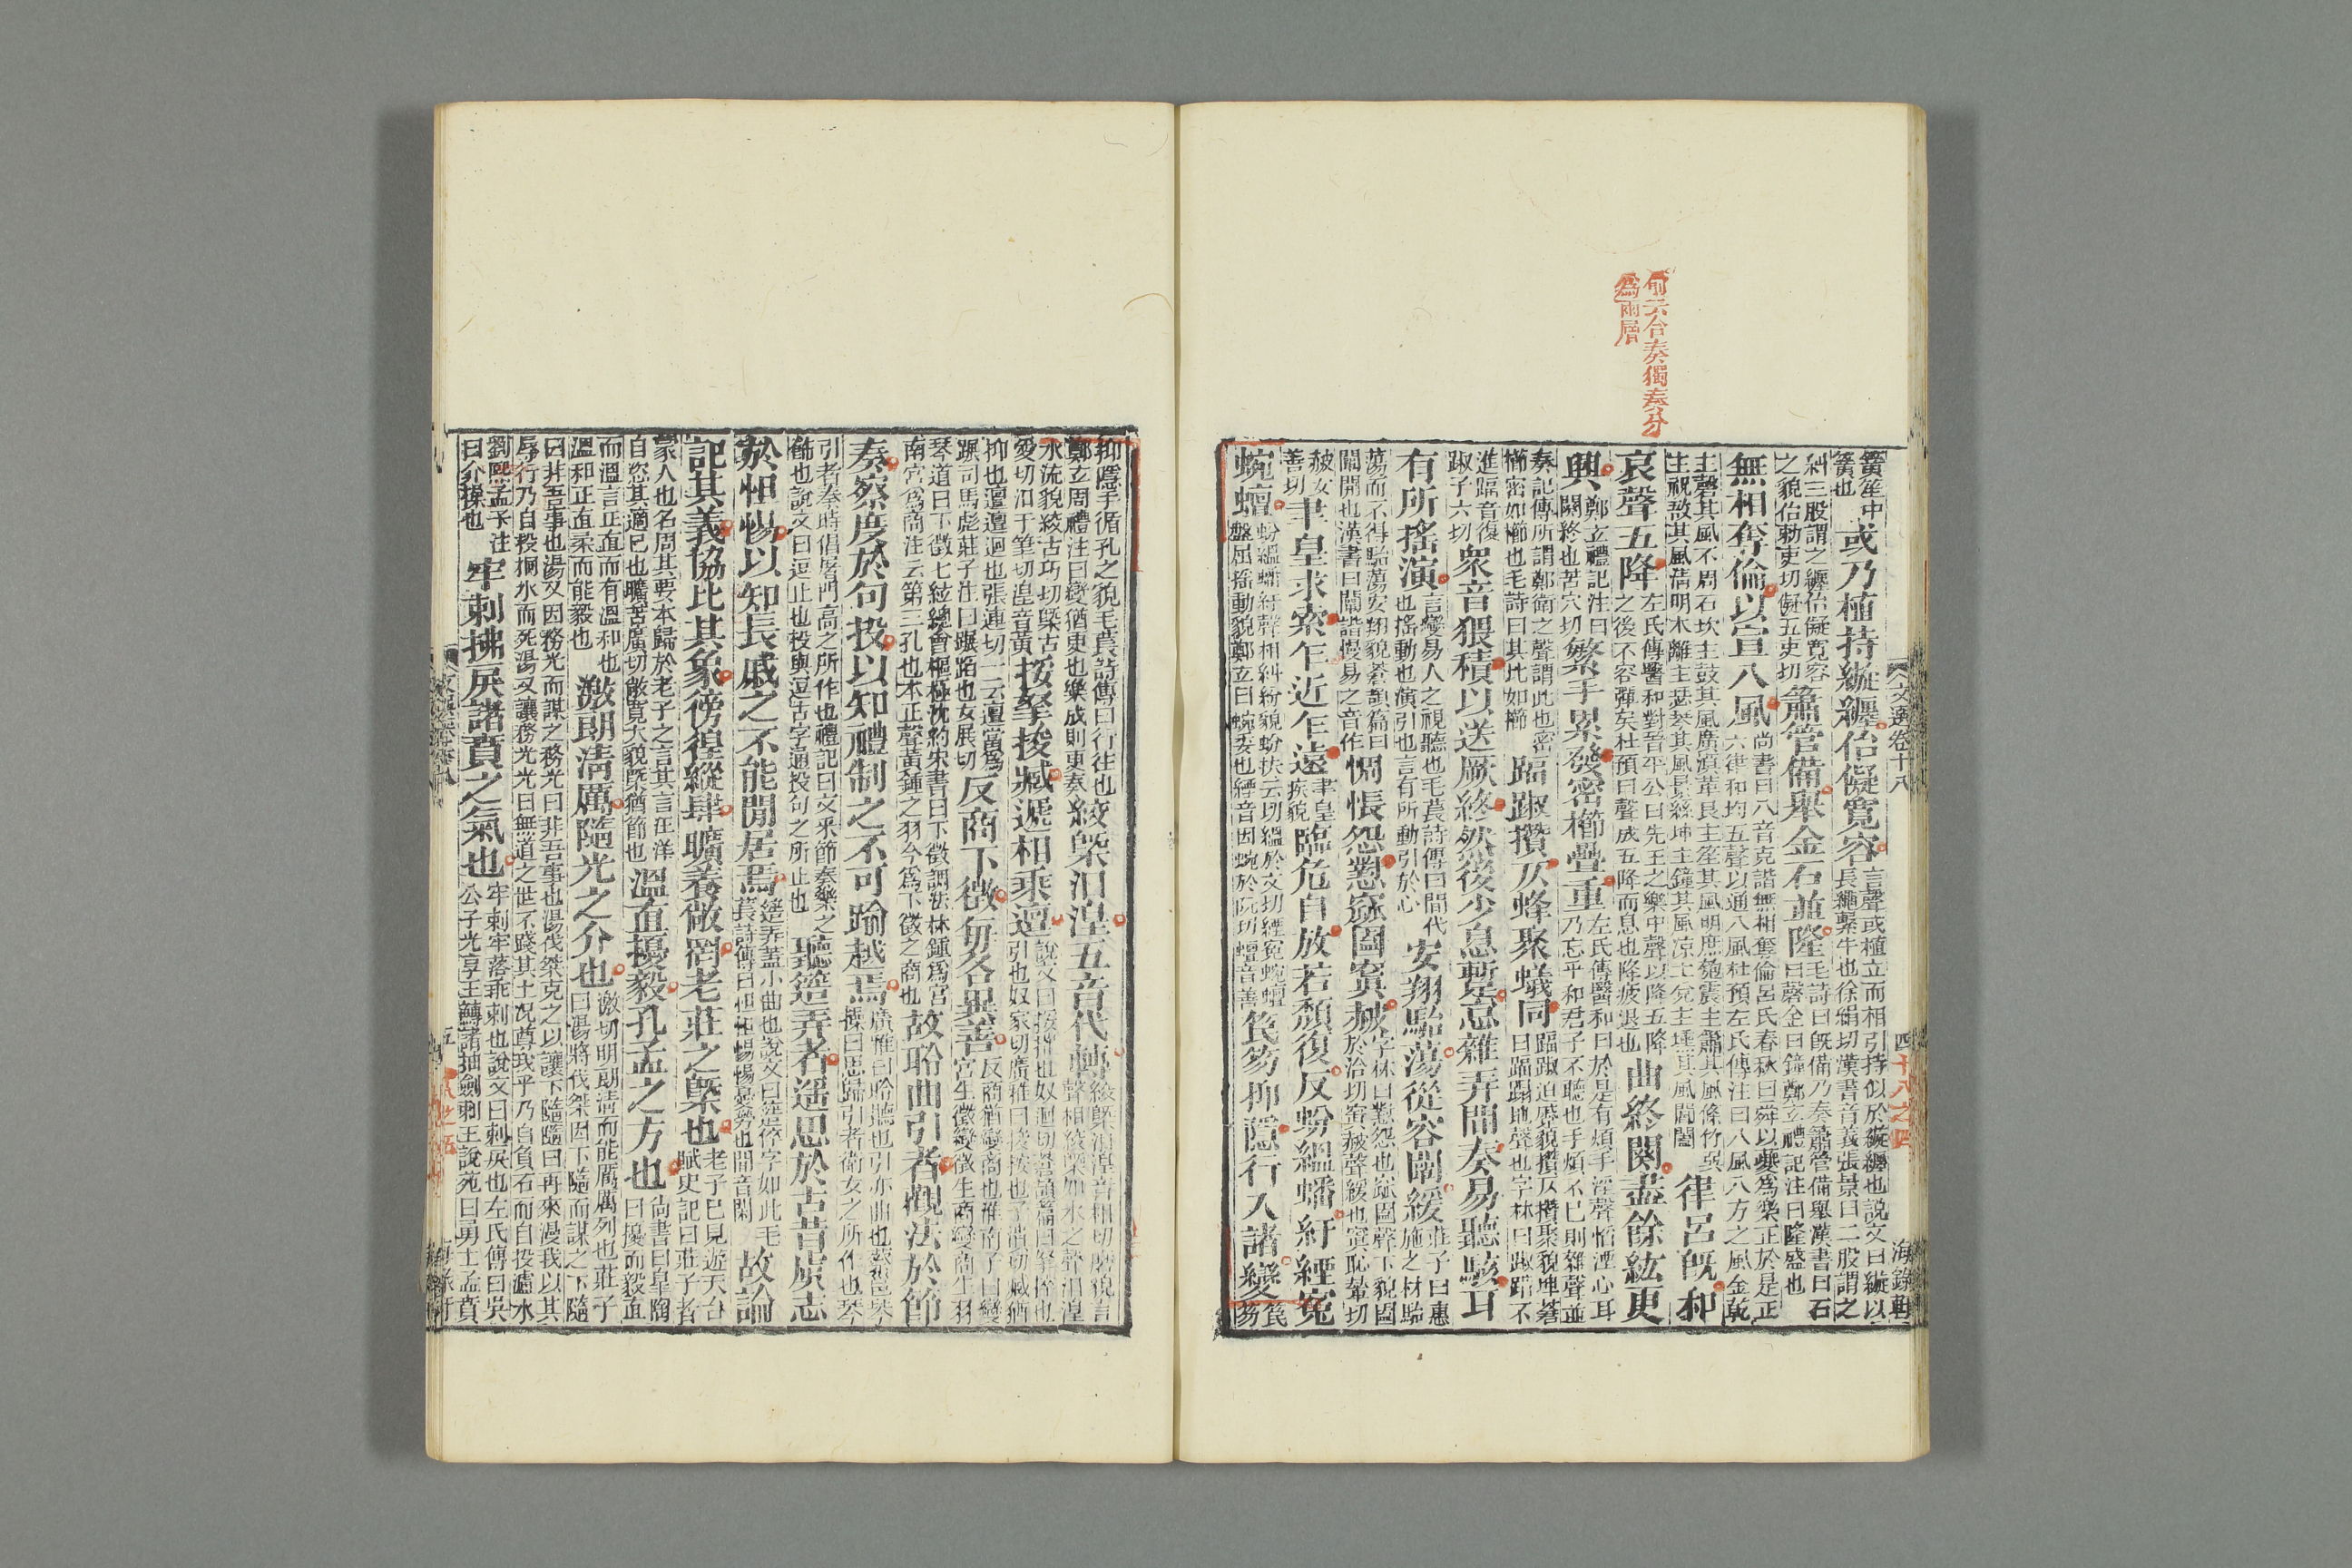 何云合奏獨奏分
爲兩層
文選卷十八
四
十八之四
海錄軒
簧笙中簧也或乃植持縼纆佁儗寬容言聲或植立而相引持似於縼纆也說文曰縼以長繩繫牛也徐絹切漢書音義張晏曰二股謂之
糾三股謂之纆佁儗寬容之貌佁勑吏切儗五吏切簫管備舉金石並隆毛詩曰旣備乃奏簫管備舉漢書曰石曰磬金曰鐘鄭玄禮記注曰隆盛也
無相奪倫以宣八風尚書曰八音克諧無相奪倫呂氏春秋曰舜以夔爲樂正於是正六律和均五聲以通八風杜預左氏傳注曰八風八方之風金乾
主磬其風不周石坎主鼓其風廣漠革艮主笙其風明庶匏震主簫其風條竹巽生柷敔其風清明木離主瑟琴其風景絲坤主鐘其風凉土兊主壎其風閶闔律呂旣和
哀聲五降左氏傳醫和對晉平公曰先王之樂中聲以降五降之後不容彈矣杜預曰聲成五降而息也降疲退也曲終闋盡餘絃更
興鄭玄禮記注曰闋終也苦穴切繁手累發密櫛疊重左氏傳醫和曰於是有煩手淫聲慆湮心耳乃忘乎和君子不聽也手煩不已則雜聲並
奏記傳所謂鄭衛之聲謂此也密櫛密如櫛也毛詩曰其比如櫛踾踧攢仄蜂聚蟻同踾踧迫蹙貌攢仄攢聚貌埤蒼曰踾蹋地聲也字林曰踧踖不
進踾音復踧子六切衆音猥積以送厥終然後少息蹔怠雜弄間奏易聽駭耳
有所搖演言變易人之視聽也毛萇詩傳曰間代也搖動也演引也言有所動引於心安翔駘蕩從容闡緩莊子曰惠施之材駘
蕩而不得駘蕩安翔貌蒼頡篇曰闡開也漢書曰闡諧慢易之音作惆悵怨懟窳圔窴赧字林曰懟怨也窳圔聲下貌圔於洽切窴赧聲緩也窴恥輦切
赧女善切聿皇求索乍近乍遠聿皇疾貌臨危自放若頹復反蚡緼蟠紆緸寃
蜿蟺蚡緼蟠紆聲相糾紛貌蚡扶云切緼於文切緸寃蜿蟺盤屈搖動貌鄭玄曰蜿委也緸音因蜿於阮切蟺音善笢笏抑隱行入諸變笢笏
抑隱手循孔之貌毛萇詩傳曰行往也鄭玄周禮注曰變猶更也樂成則更奏絞槩汩湟五音代轉絞槩汩湟音相切磨貌言聲相絞槩如水之聲汩湟
水流貌絞古巧切槩古愛切汩于筆切湟音黃挼拏捘臧遞相乘邅說文曰挼摧也奴迴切蒼頡篇曰拏捽也引也奴家切廣雅曰捘按也子潰切臧猶
抑也邅邅迴也張連切一云邅當爲蹍司馬彪莊子注曰蹍蹈也女展切反商下徵每各異善反商猶變商也淮南子曰變宮生徵變徵生商變商生羽
琴道曰下徵七絃總會樞極沈約宋書曰下徵調法林鍾爲宮南宮爲商注云第三孔也本正聲黃鍾之羽今爲下徵之商也故聆曲引者觀法於節
奏察度於句投以知禮制之不可踰越焉廣雅曰聆聽也引亦曲也蔡邕琴操曰思歸引者衛女之所作也琴
引者秦時倡屠門高之所作也禮記曰文采節奏樂之飾也說文曰逗止也投與逗古字通投句之所止也聽簉弄者遥思於古昔虞志
於怛惕以知長戚之不能閒居焉簉弄蓋小曲也說文曰簉倅字如此毛萇詩傳曰怛怛惕惕憂勞也閒音閑故論
記其義協比其象徬徨縱肆曠瀁敞罔老莊之槩也老子已見遊天台賦史記曰莊子者
蒙人也名周其要本歸於老子之言其言汪洋自恣其適已也曠苦廣切敞寬大貌槩猶節也溫直擾毅孔孟之方也尚書曰皐陶曰擾而毅直
而溫言正直而有溫和也溫和正直柔而能毅也激朗清厲隨光之介也激切明朗清而能厲厲列也莊子曰湯將伐桀因卞隨而謀之卞隨
曰非吾事也湯又因務光而謀之務光曰非吾事也湯伐桀克之以讓卞隨隨曰再來漫我以其辱行乃自投桐水而死湯又讓務光光曰無道之世不踐其土況尊我乎乃自負石而自投廬水
劉熙孟子注曰介操也牢剌拂戾諸賁之氣也牢剌牢落乖剌也說文曰剌戾也左氏傳曰吳公子光享王鱄諸抽劍刺王說苑曰勇士孟賁
文選卷十八
五